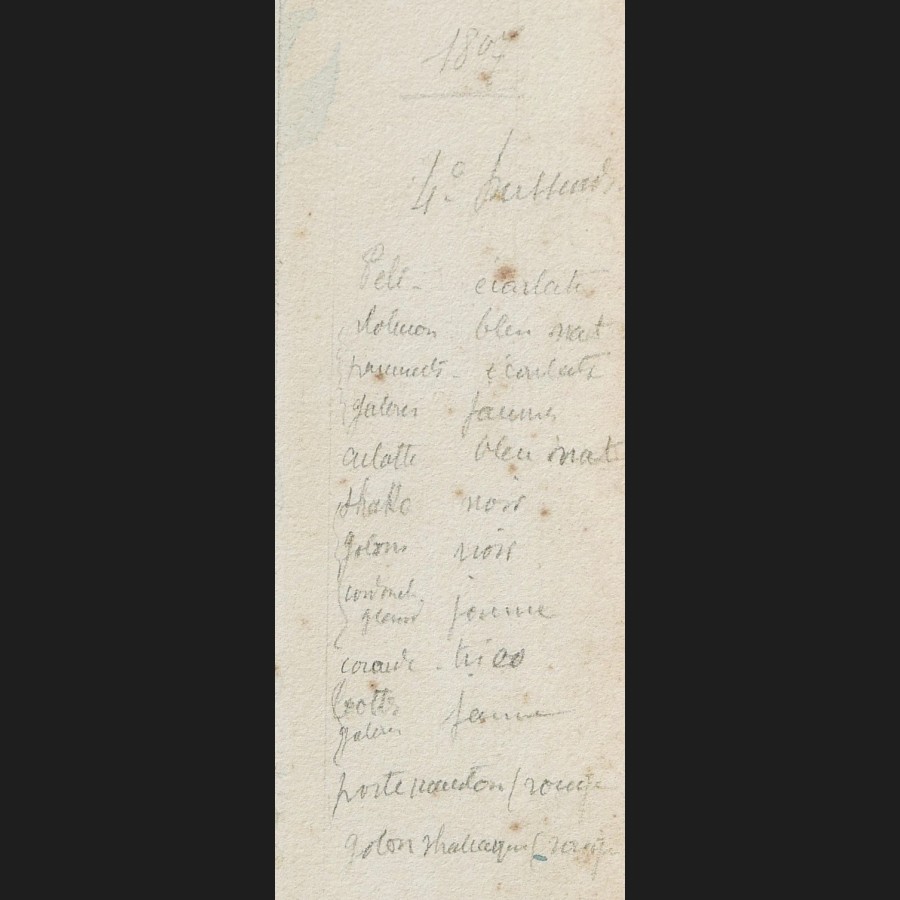 1807
4e hussards
Pelisse écarlate
dolman bleu nat
parements écarlate
galons jaunes
culotte bleu nat
shako noir
galons noir
cordonet
gland jaune
cocarde trico
bottes
galons jaune
porte manteau (rouge
galon shabraque (rouge